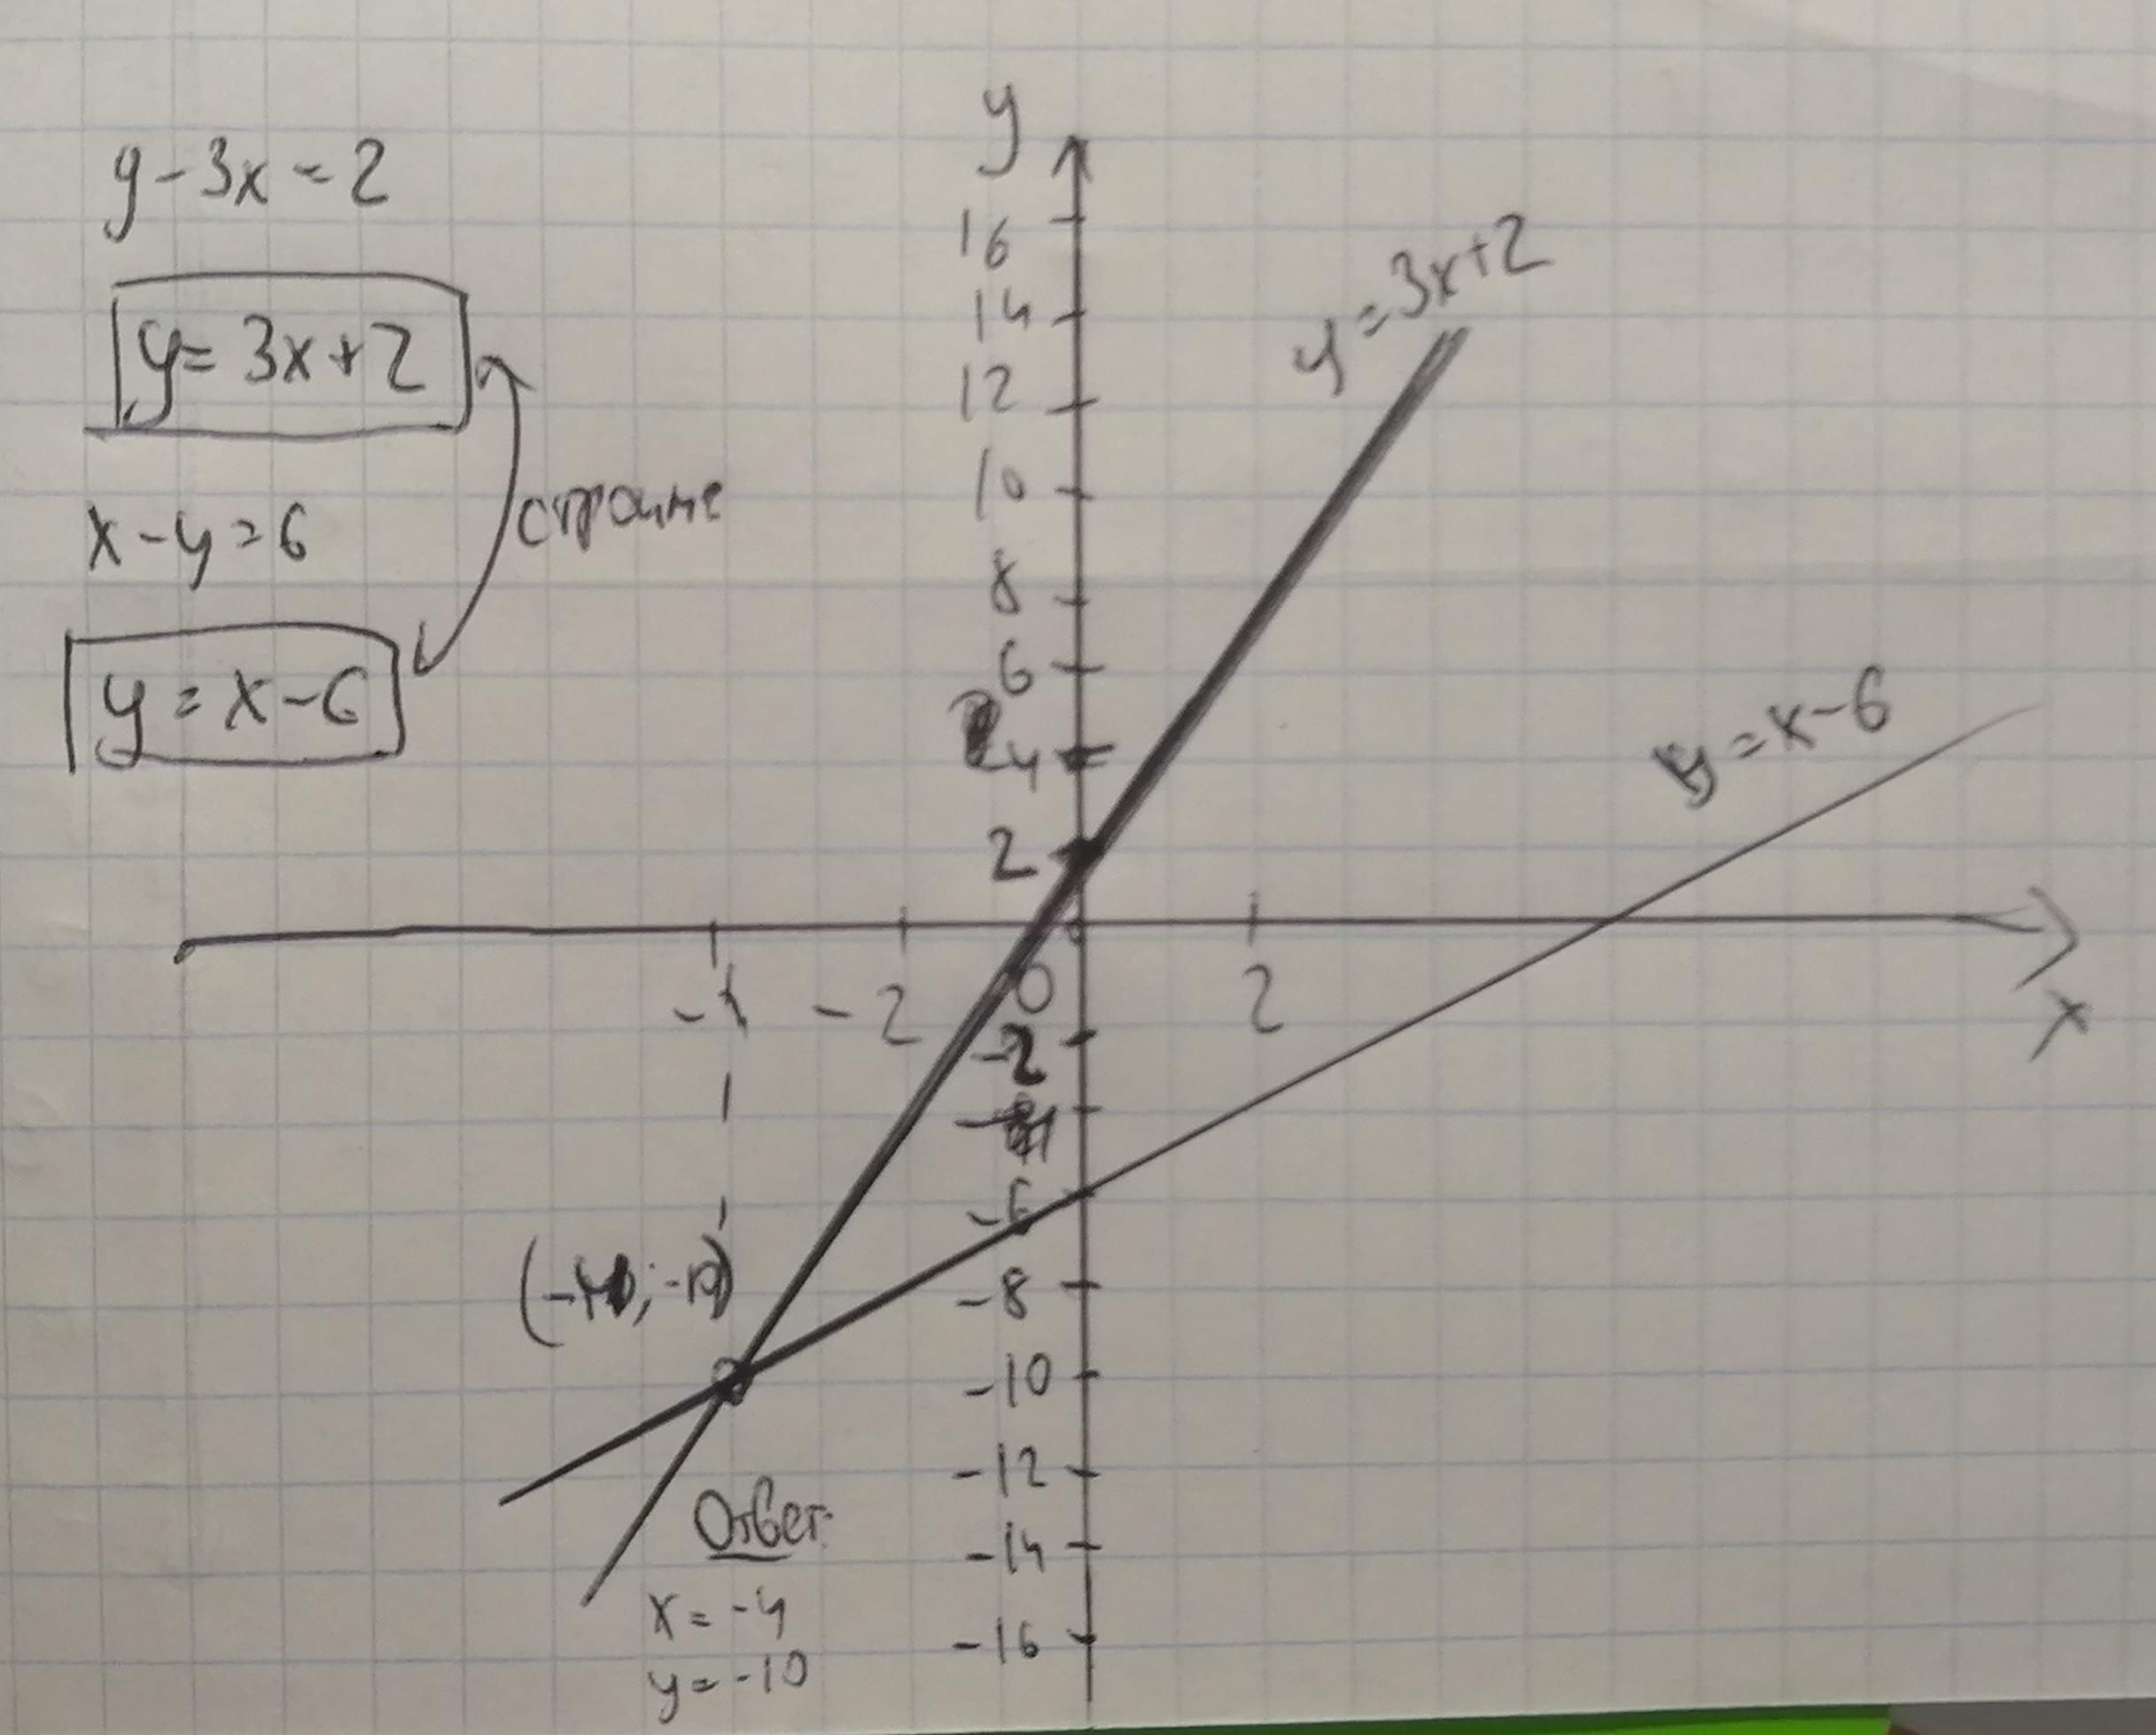 y-3x=2
y=3x+2
строите
x-y=6
y=x-6
y
16
14
12
10
8
6
4
2
0
-2
-6
-8
-10
-12
-14
-16
-4
-2
2
x
y=3x+2
y=x-6
Ответ:
x=-4
y=-10